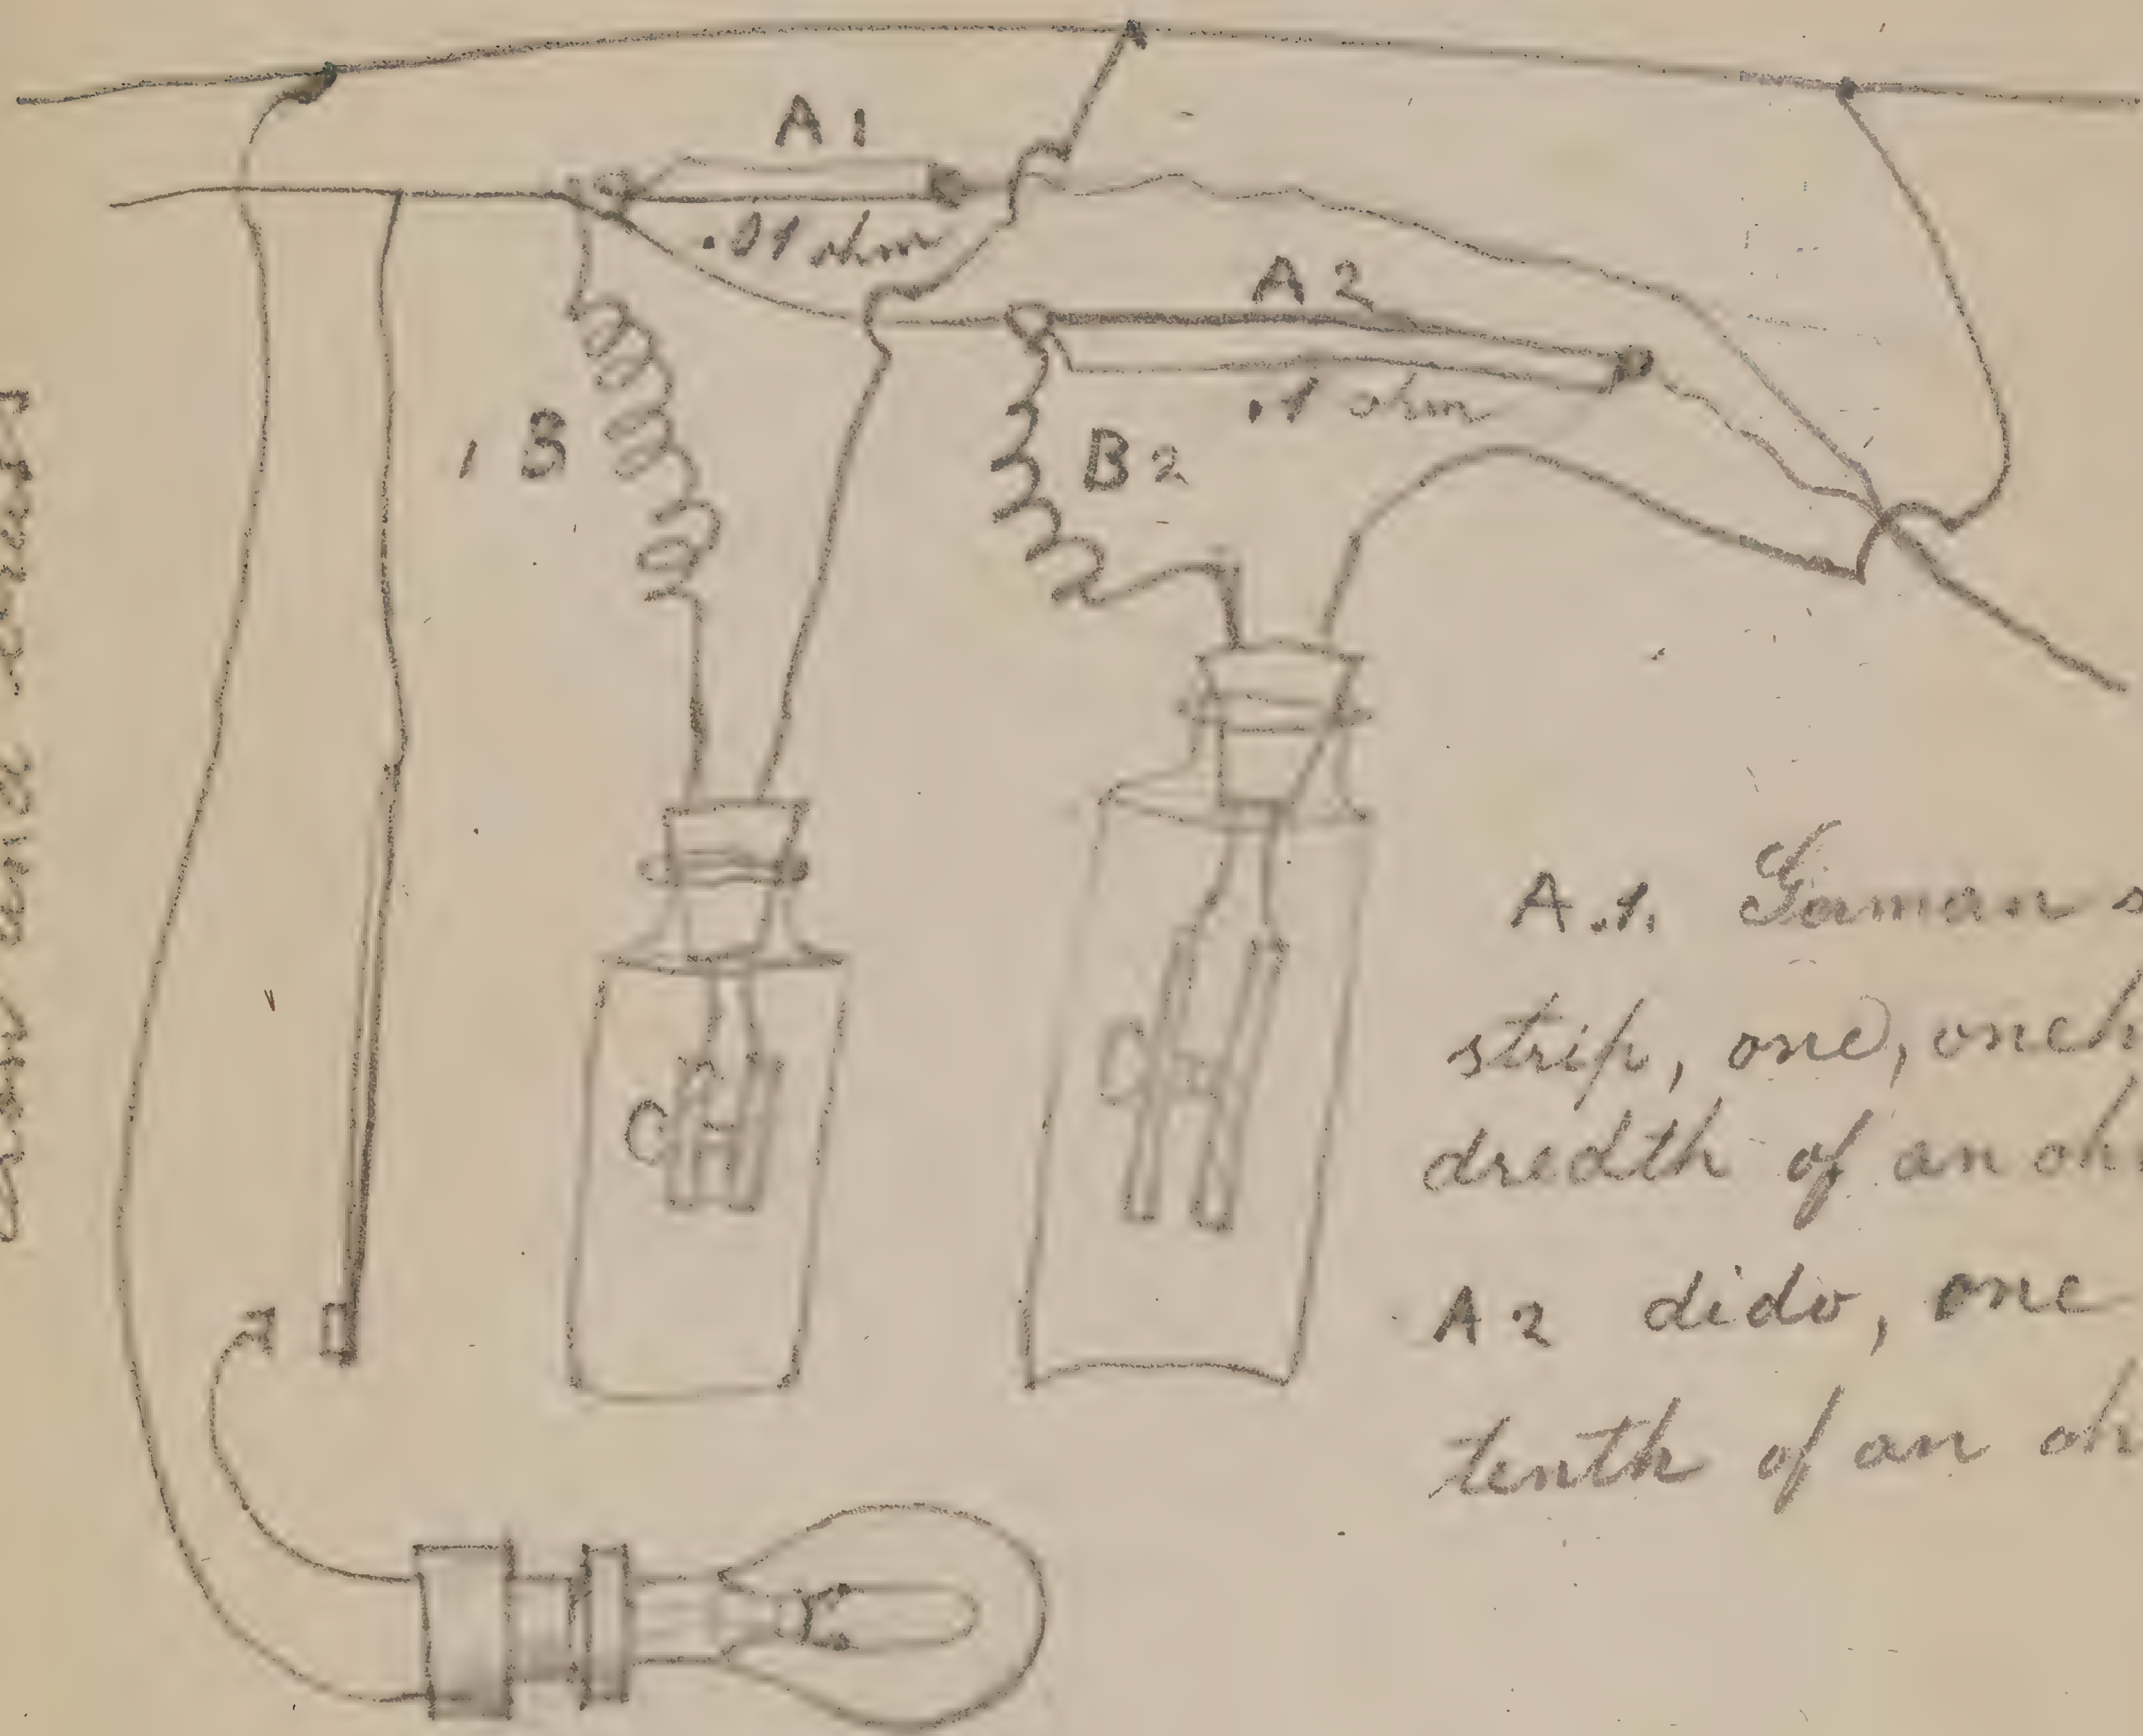 A 1
.01 ohm
A 2
.1 ohm
1 B
B 2
C
C
A.1. German s
strip, one, oneh
dredth of an oh
A 2 dido, one
tenth of an oh